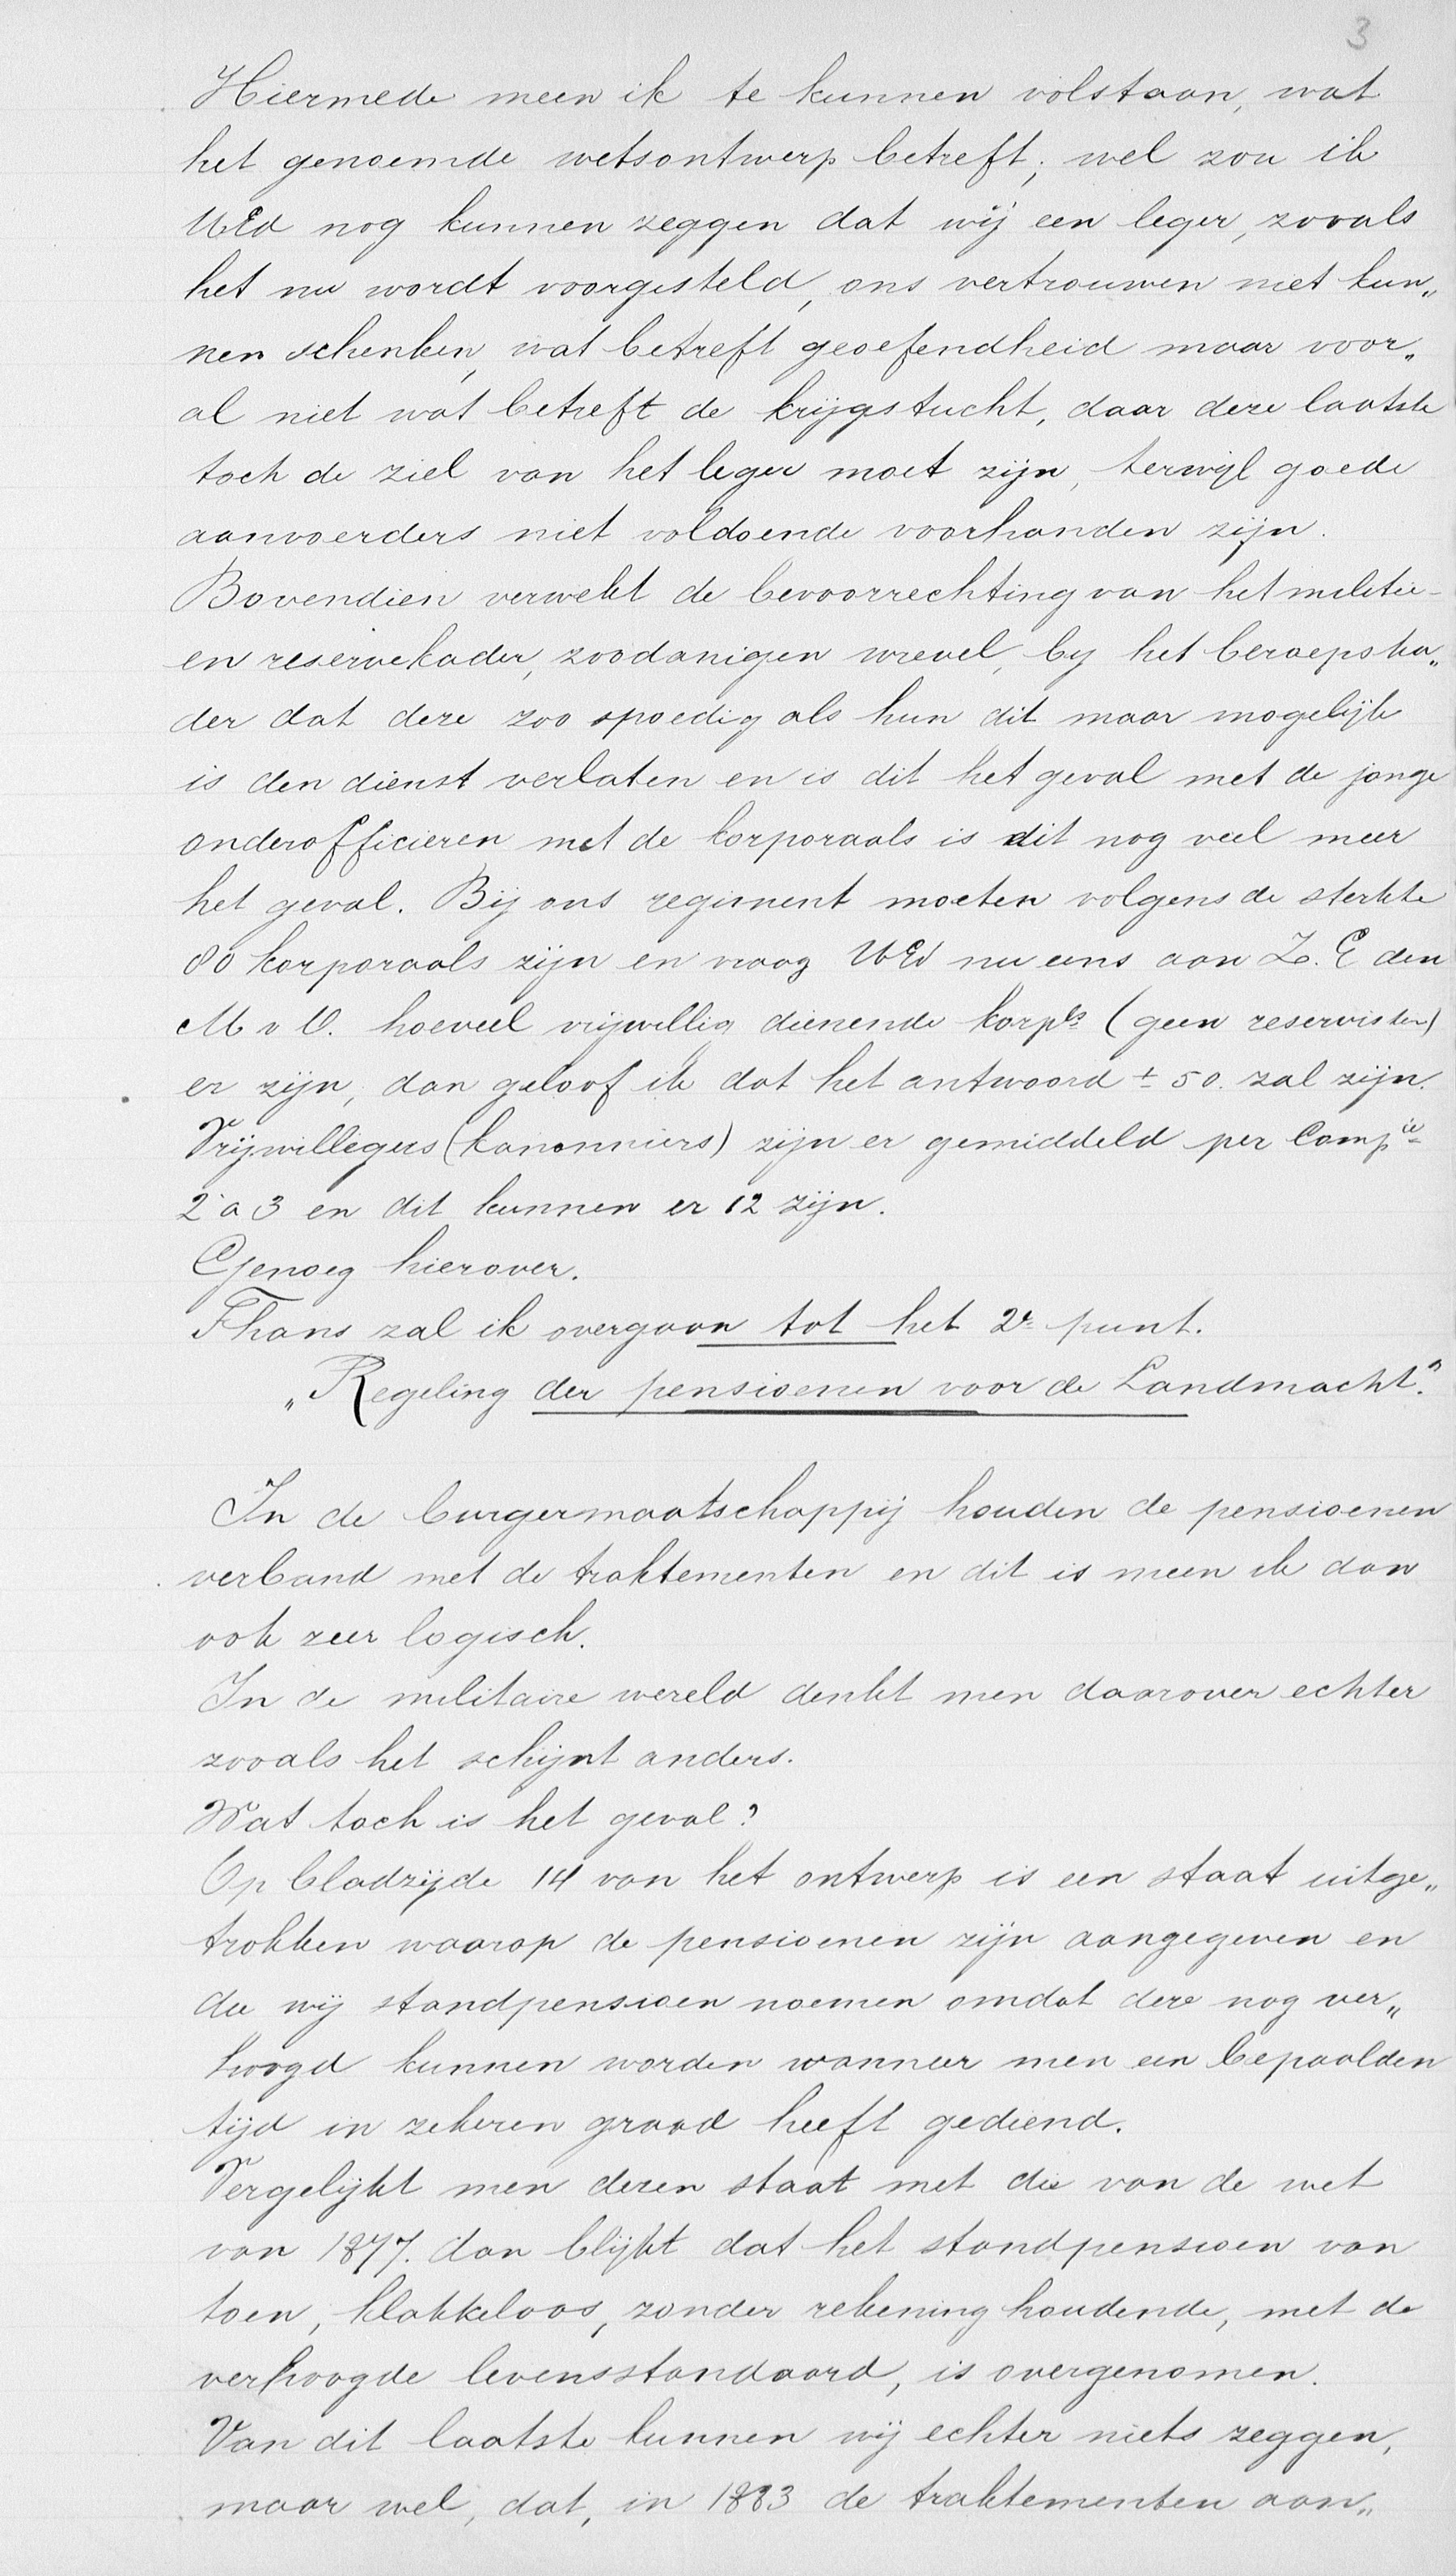 3
Hiermede meen ik te kunnen volstaan, wat
het genoemde wetsontwerp betreft; wel zou ik
UEd nog kunnen zeggen dat wij een leger, zooals
het nu wordt voorgesteld, ons vertrouwen niet kun„
nen schenken, wat betreft geoefendheid maar voor„
al niet wat betreft de krijgstucht, daar deze laatste
toch de ziel van het leger moet zijn, terwijl goede
aanvoerders niet voldoende voorhanden zijn.
Bovendien verwekt de bevoorrechting van het militie-
en reservekader, zoodanigen wrevel, by het beroepska„
der dat deze zoo spoedig als hun dit maar mogelijk
is den dienst verlaten en is dit het geval met de jonge
onderofficieren met de korporaals is dit nog veel meer
het geval. Bij ons regiment moeten volgens de sterkte
80 korporaals zijn en vraag UEd nu eens aan Z.E den
M v O. hoeveel vrijwillig dienende korpls (geen reservisten)
er zijn, dan geloof ik dat het antwoord ± 50. zal zijn.
Vrijwilligers (kanonniers) zijn er gemiddeld per Compie
2 à 3 en dit kunnen er 12 zijn.
Genoeg hierover.
Thans zal ik overgaan tot het 2e punt.
„Regeling der pensioenen voor de Landmacht."
In de burgermaatschappij houden de pensioenen
verband met de traktementen en dit is meen ik dan
ook zeer logisch.
In de militaire wereld denkt men daarover echter
zooals het schijnt anders.
Wat toch is het geval?
Op bladzijde 14 van het ontwerp is een staat uitge„
trokken waarop de pensioenen zijn aangegeven en
die wij standpensioen noemen omdat deze nog ver„
hoogd kunnen worden wanneer men een bepaalden
tijd in zekeren graad heeft gediend.
Vergelijkt men dezen staat met die van de wet
van 1877. dan blijkt dat het standpensioen van
toen, klakkeloos, zonder rekening houdende, met de
verhoogde levensstandaard, is overgenomen.
Van dit laatste kunnen wij echter niets zeggen,
maar wel, dat, in 1883 de traktementen aan„